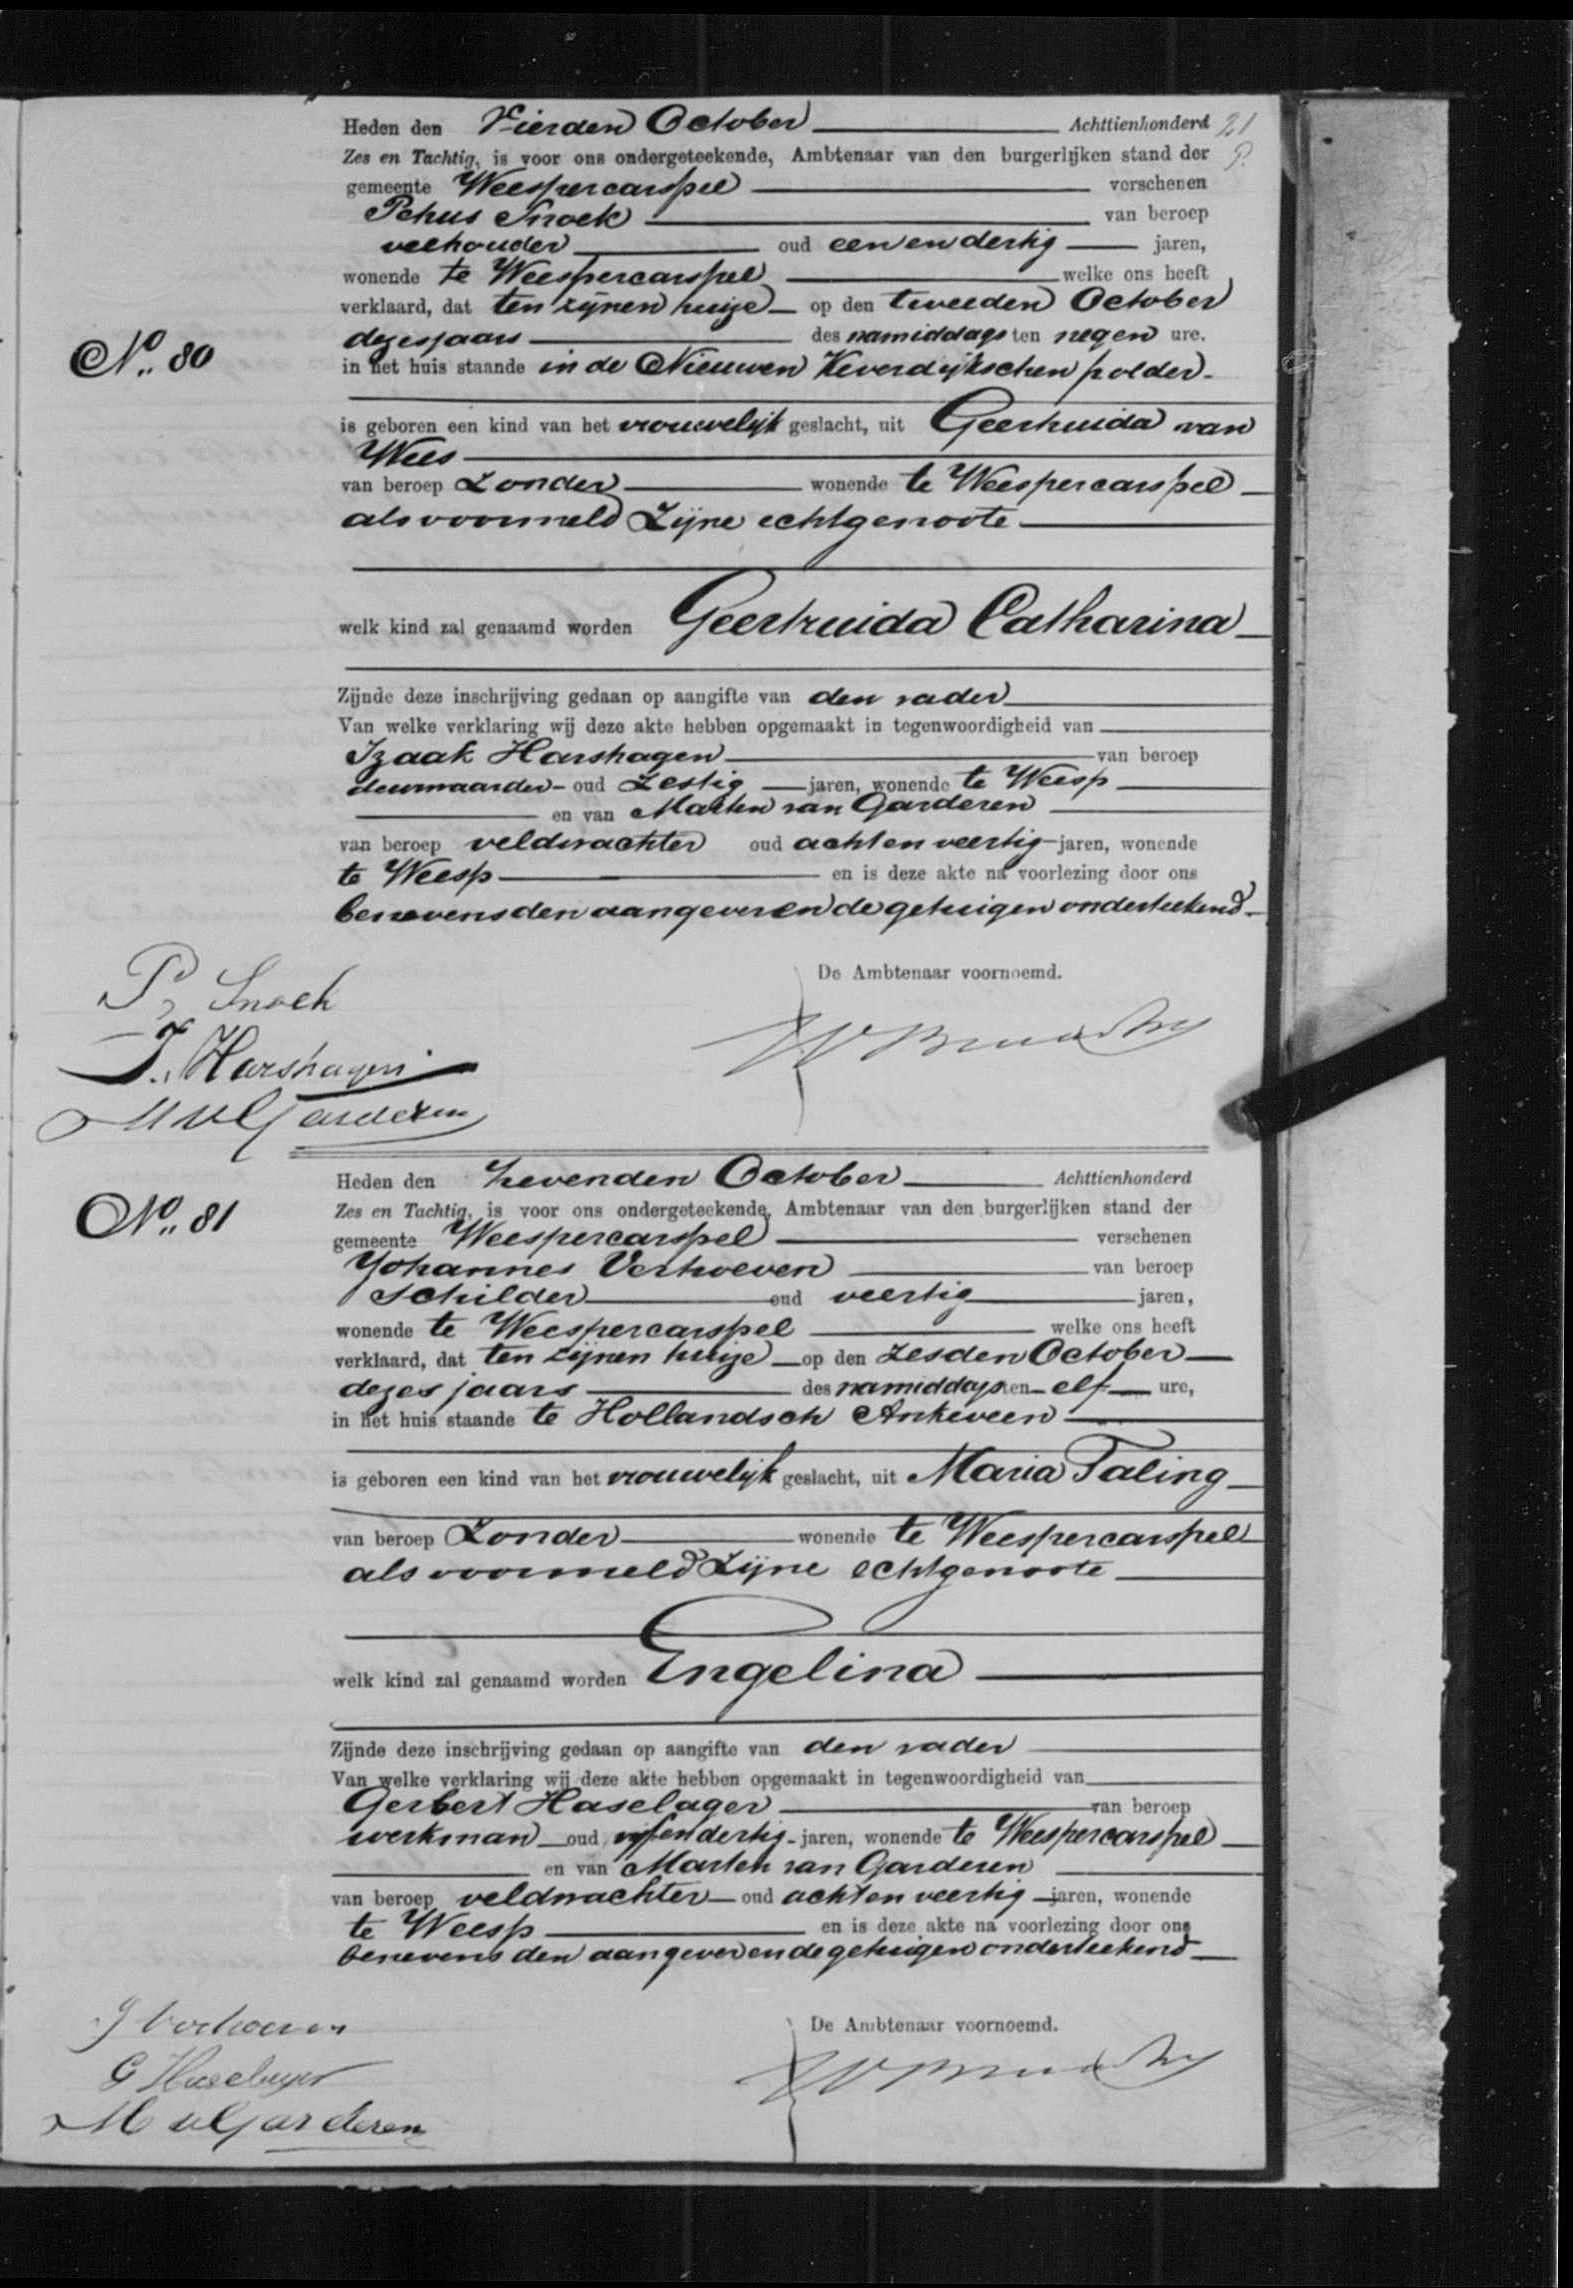 Heden den Vierden October Achttienhonderd 21
Zes en Tachtig, is voor ons ondergeteekende, Ambtenaar van den burgerlijken stand der P.
gemeente Weespercarspel verschenen
Petrus Snoek van beroep
veehouder oud een en dertig jaren,
wonende te Weespercarspel welke ons heeft
verklaard, dat ten zijnen huize op den tweeden October
dezes jaars des namiddags ten negen ure.
No. 80
in het huis staande in de Nieuwen Keverdijkschen polder.
is geboren een kind van het vrouwelijk geslacht, uit Geertruida van
Wees
van beroep Zonder wonende te Weespercarspel
als voormeld Zijne echtgenoote
welk kind zal genaamd worden Geertruida Catharina
Zijnde deze inschrijving gedaan op aangifte van den vader
Van welke verklaring wij deze akte hebben opgemaakt in tegenwoordigheid van
Izaak Harshagen van beroep
deurwaarder oud Zestig jaren, wonende te Weesp
en van Marten van Garderen
van beroep veldwachter oud acht en veertig jaren, wonende
te Weesp en is deze akte na voorlezing door ons
benevens den aangever en de getuigen onderteekend
De Ambtenaar voornoemd.
P. Snoek
I. Harshagen
M v Garderen
Heden den Zevenden October Achttienhonderd
No. 81
Zes en Tachtig, is voor ons ondergeteekende, Ambtenaar van den burgerlijken stand der
gemeente Weespercarspel verschenen
Johannes Verhoeven van beroep
Schilder oud veertig jaren,
wonende te Weespercarspel welke ons heeft
verklaard, dat ten zijnen huize op den Zesden October
dezes jaars des namiddags ten elf ure,
in het huis staande te Hollandsch Ankeveen
is geboren een kind van het vrouwelijk geslacht, uit Maria Taling
van beroep Zonder wonende te Weespercarspel
als voormeld Zijne echtgenoote
welk kind zal genaamd worden Engelina
Zijnde deze inschrijving gedaan op aangifte van den vader
Van welke verklaring wij deze akte hebben opgemaakt in tegenwoordigheid van
Gerbert Haselager van beroep
werkman oud vijf en dertig jaren, wonende te Weespercarspel
en van Marten van Garderen
van beroep veldwachter oud acht en veertig jaren, wonende
te Weesp en is deze akte na voorlezing door ons
benevens den aangever en de getuigen onderteekend
De Ambtenaar voornoemd.
J Verhoeven
G Haselager
M v Garderen